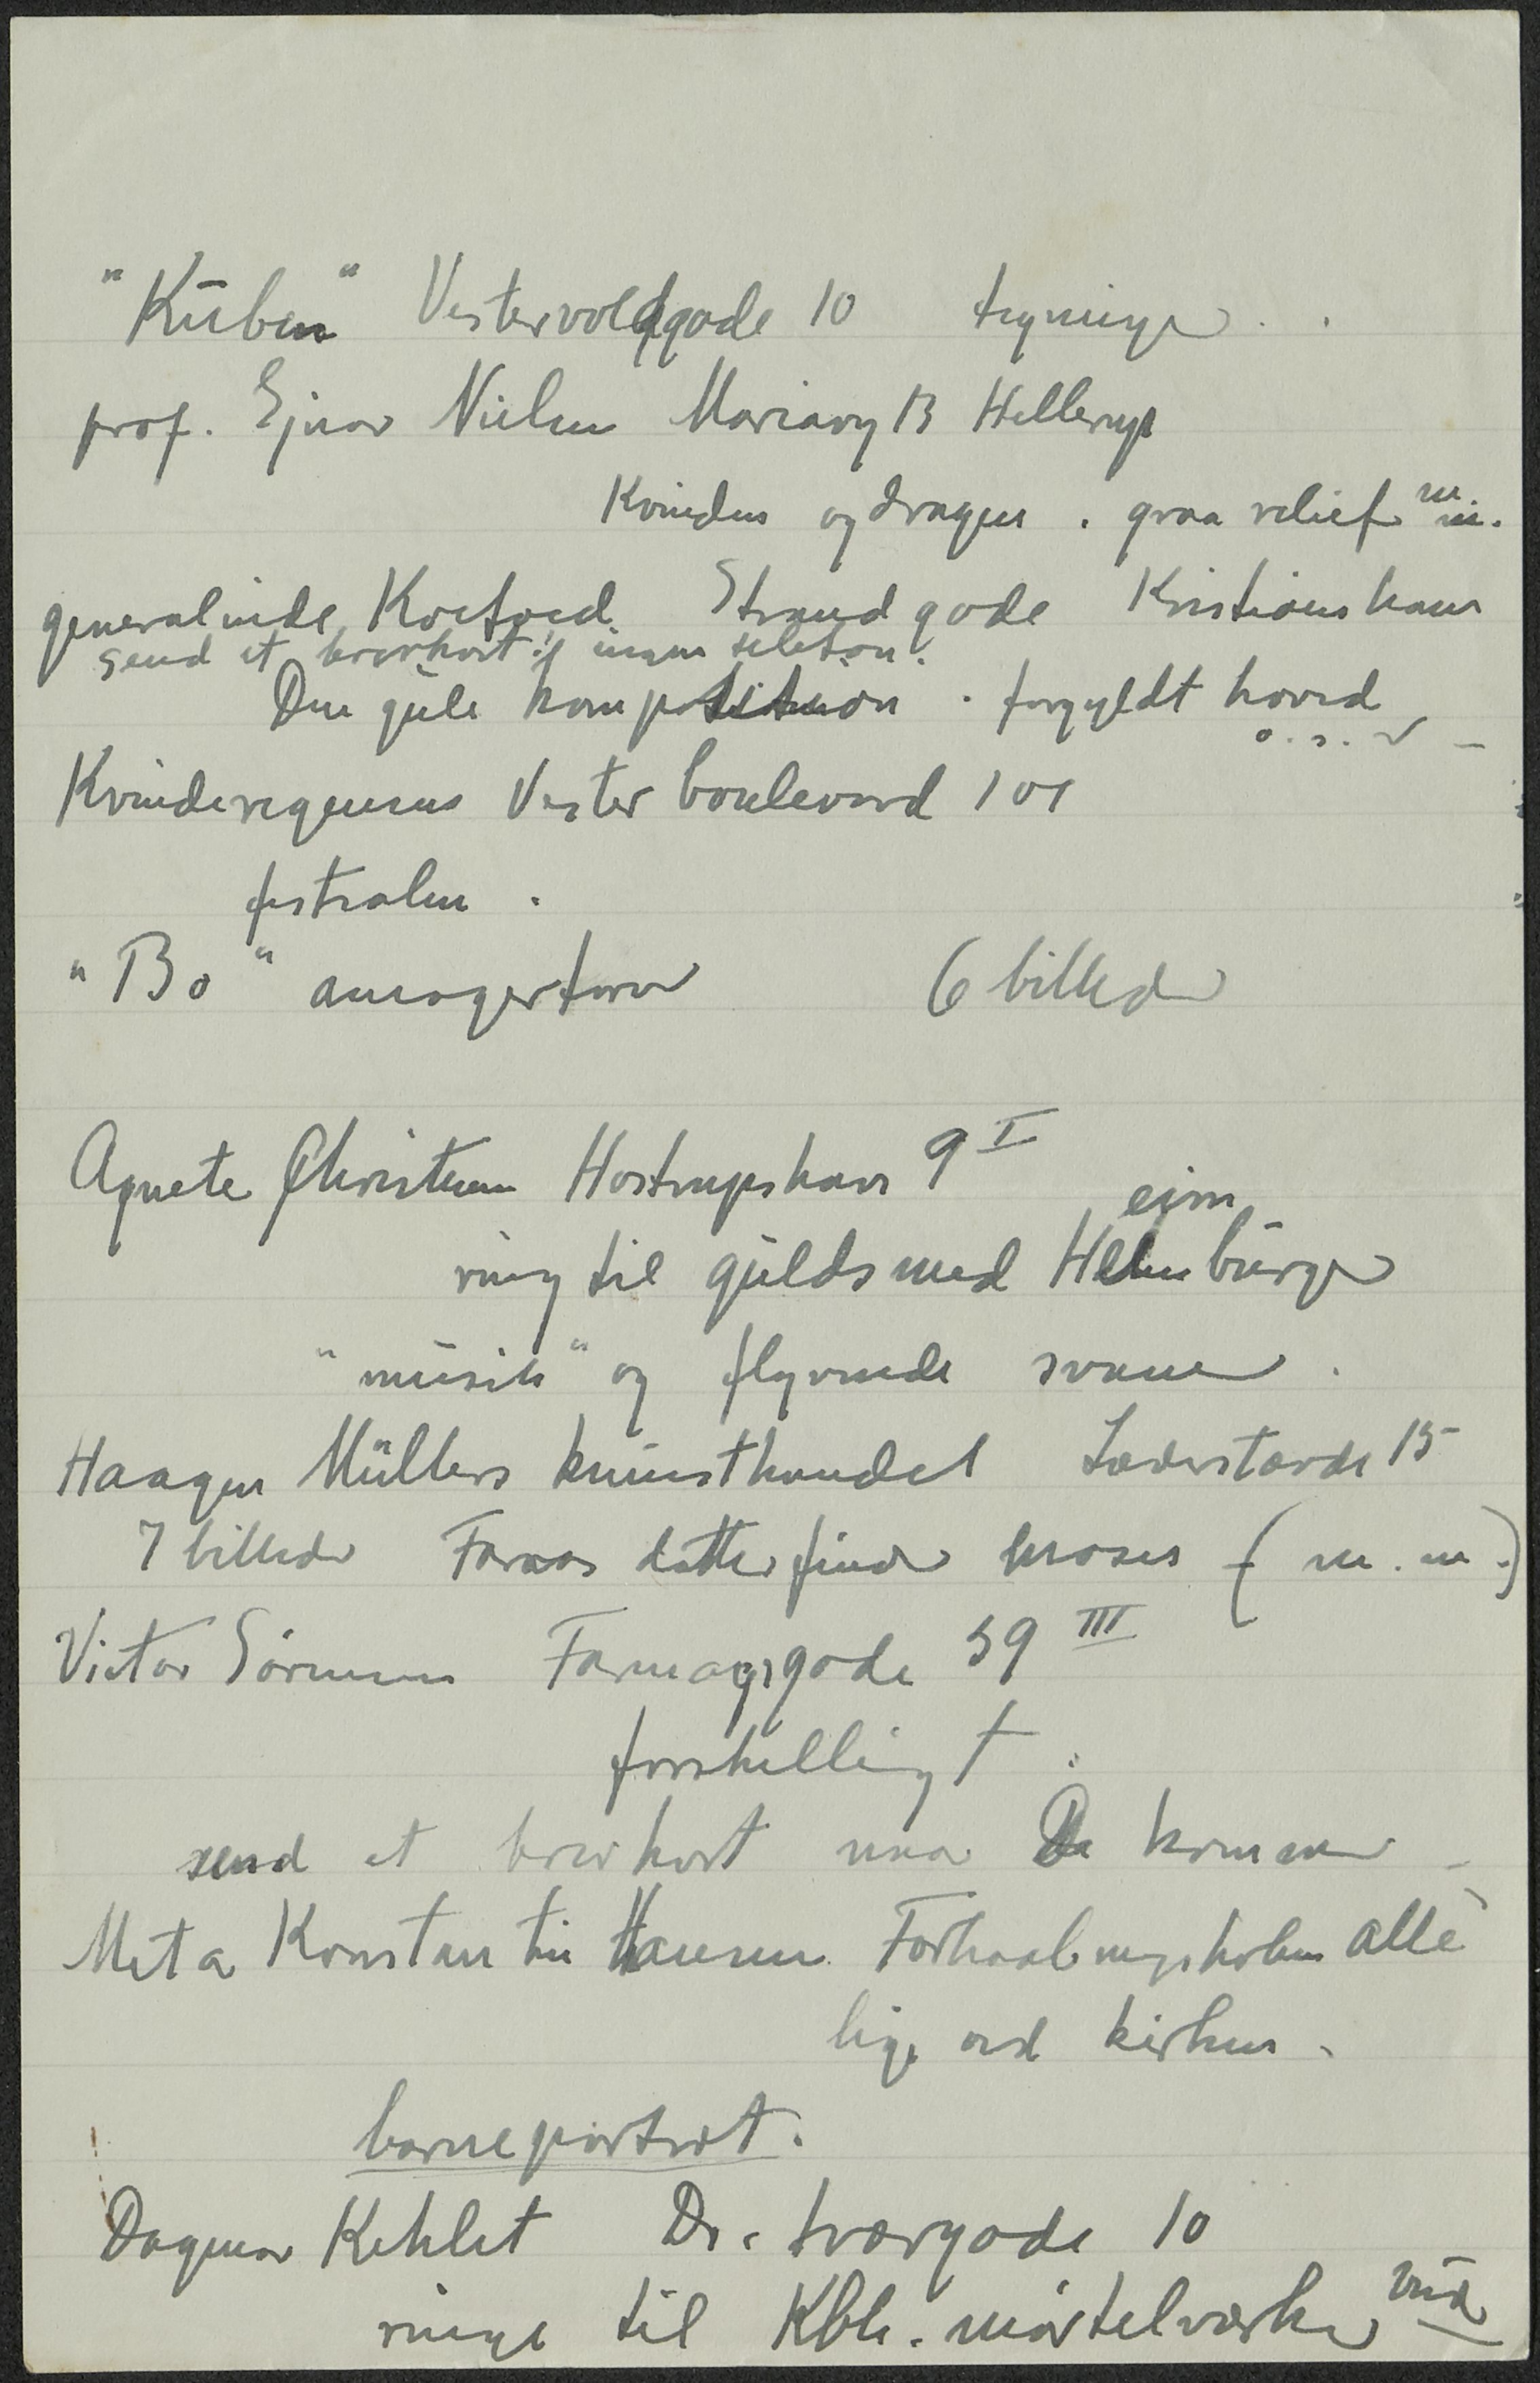 "Kuben" Vestervoldgade 10 tegninger . .
prof. Ejnar Nielsen Mariavej 13 Hellerup
Kvinden og dragen . graa relief m. m.
generalinde Koefoed Strandgade Kristianshavn
send et brevkort; ingen telefon.
Den gule komposition . forgyldt hoved
o. s. v —
Kvinderegensen Vester boulevard 101
festsalen .
"Bo" amagertorv 6 billeder
Agnete Christensen Hostrupshave 9 I
ring til guldsmed Heimbürger
"musik" og flyvende svaner .
Haagen Müllers kunsthandel Læderstræde 15
7 billeder Faraos datter finder moses (m. m.)
Victor Sörensen Farimagsgade 39 III
forskelligt .
send et brevkort naa De kommer –
Meta Konstantin Hansen Forhaabningsholms allé
lige ved kirken .
barneportræt.
Dagmar Kehlet Dr. tværgade 10
ringe til Kbh. mörtelværker